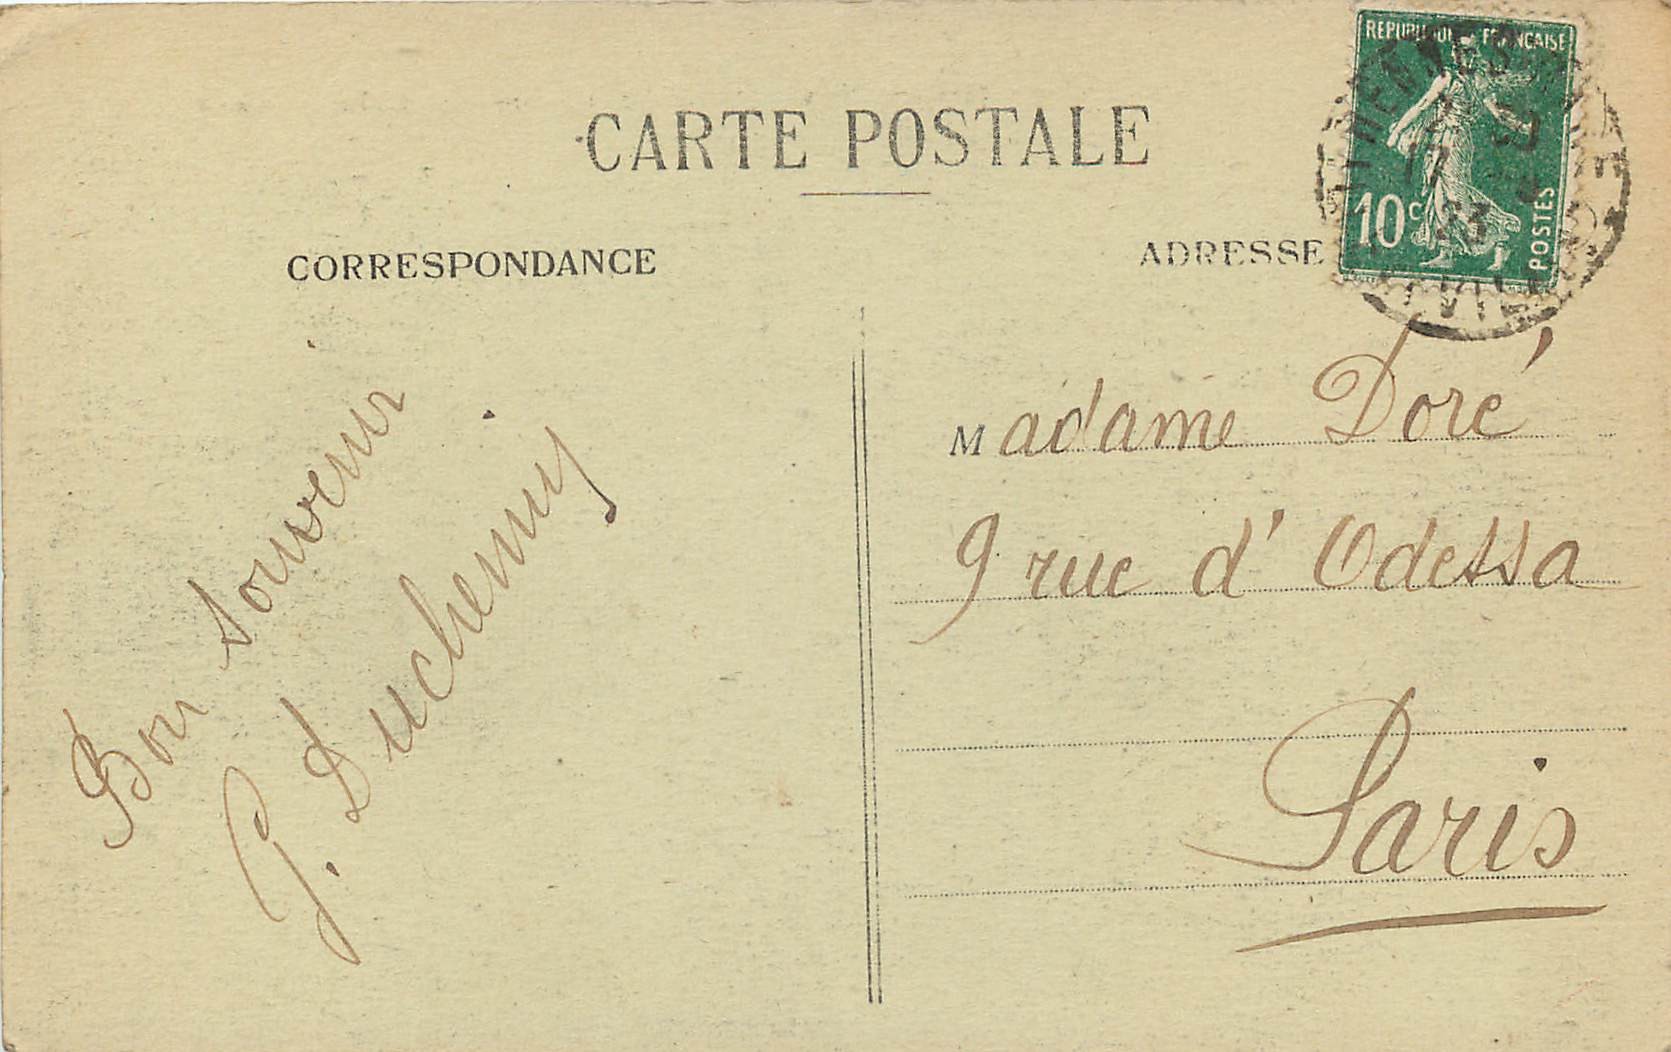 CARTE POSTALE
CORRESPONDANCE
ADRESSE
REPUBLIQUE FRANÇAISE
10c
POSTES
23
Bon souvenir
J. Duchemin
Madame Doré
9 rue d'Odessa
Paris